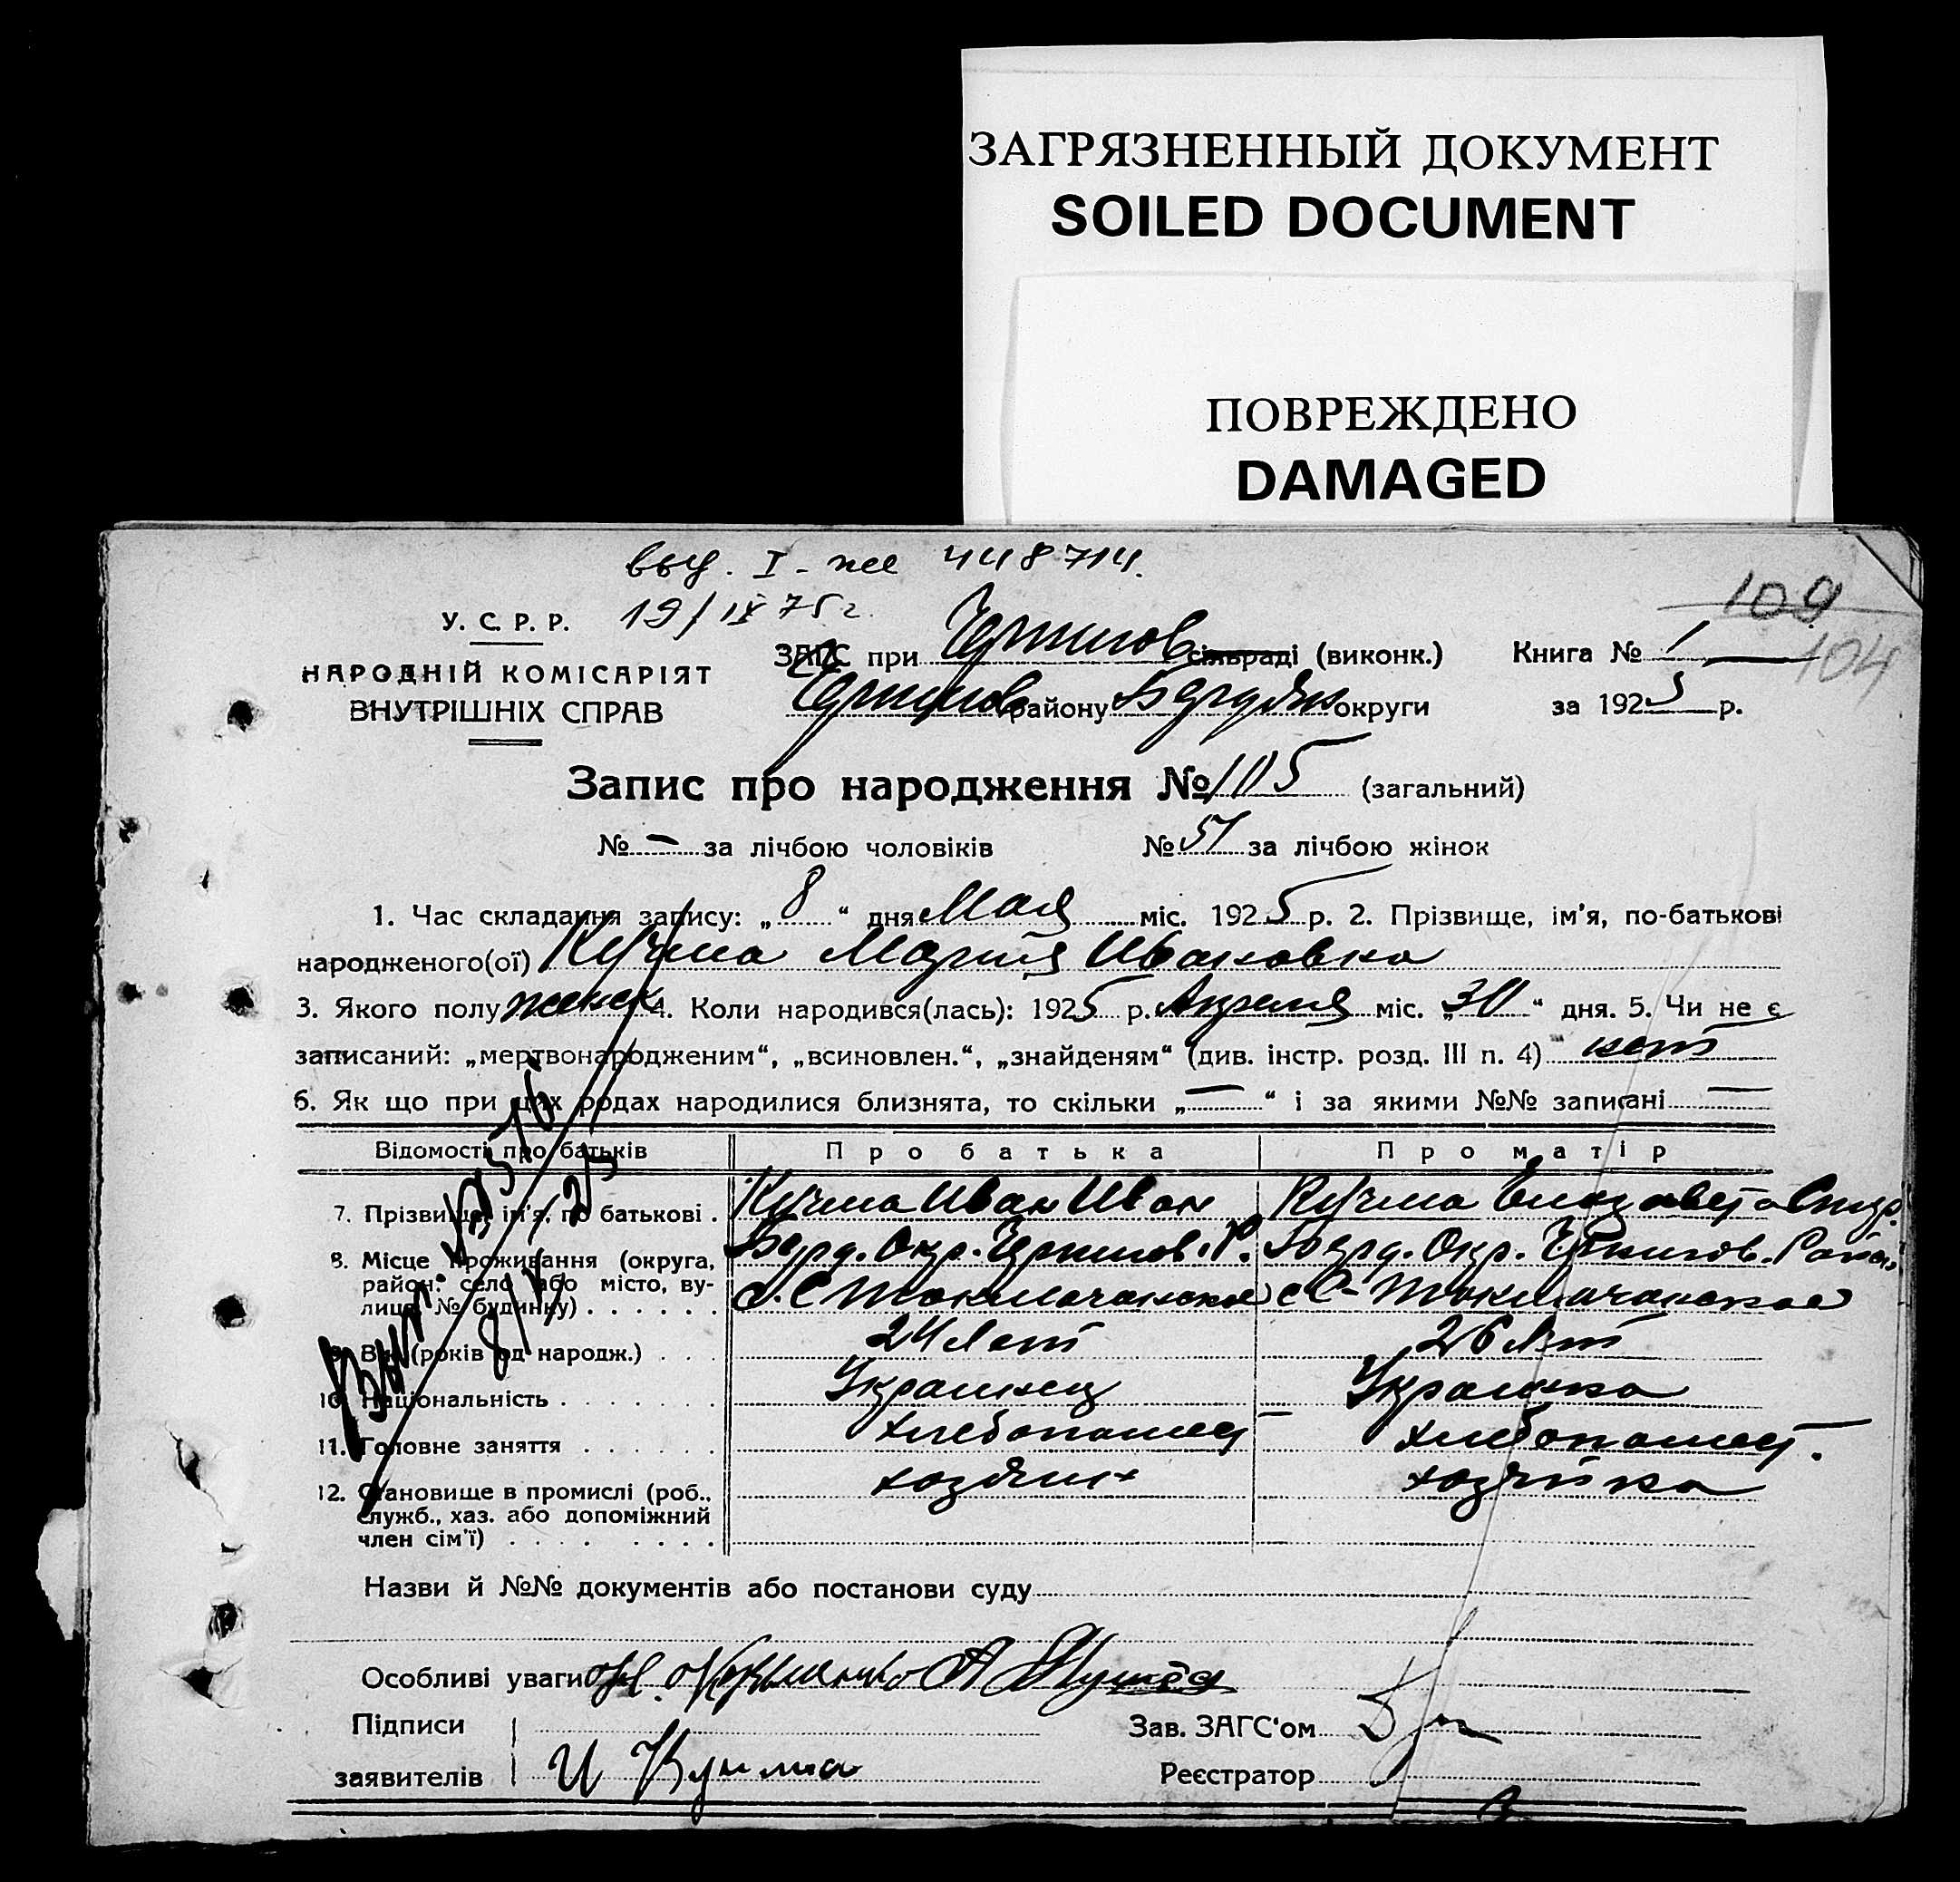 ЗАГРЯЗНЕННЫЙ ДОКУМЕНТ
SOILED DOCUMENT
ПОВРЕЖДЕНО
DAMAGED
выд. I-же 448714.
19/IX 75 г.
109
104
У. С. Р. Р.
НАРОДНІЙ КОМІСАРІЯТ
ВНУТРІШНІХ СПРАВ
ЗАГС при Чернигов сільраді (виконк.) Книга № 1
Чернигов району Бердян округи за 1925 р.
Запис про народження № 105 (загальний)
№ — за лічбою чоловіків № 51 за лічбою жінок
1. Час складання запису: „ 8 “ дня Мая міс. 1925 р. 2. Прізвище, ім'я, по-батькові
народженого(ої) Кучма Мария Ивановна
3. Якого полу женск 4. Коли народився(лась): 1925 р. Апреля міс. „ 30 “ дня. 5. Чи не є
записаний: „мертвонародженим“, „всиновлен.“, „знайденям“ (див. інстр. розд. III п. 4) нет
6. Як що при цих родах народилися близнята, то скільки „ — “ і за якими №№ записані —
Відомості про батьків Про батька Про матір
7. Прізвище, ім'я, по батькові . Кучма Иван Иван Кучма Елизавета Спир.
8. Місце проживання (округа, Берд. Окр. Чернигов. Р. Берд. Окр. Чернигов. Район,
район: село або місто, ву-
лиця, № будинку) . . . . . . с. С Токмачанское с С-Токмачанское
9. Вік (років од народж.) . . . 24 лет 26 лет
10. Національність . . . . . . . Украинец Украинка
11. Головне заняття . . . . . . хлебопашец хлебопашец.
12. Становище в промислі (роб., хозяин хозяйка
служб., хаз. або допоміжний
член сім'ї) . . . . . . . . .
Назви й №№ документів або постанови суду
Особливі уваги
Підписи
заявителів И Кучма
Зав. ЗАГС'ом
Реєстратор